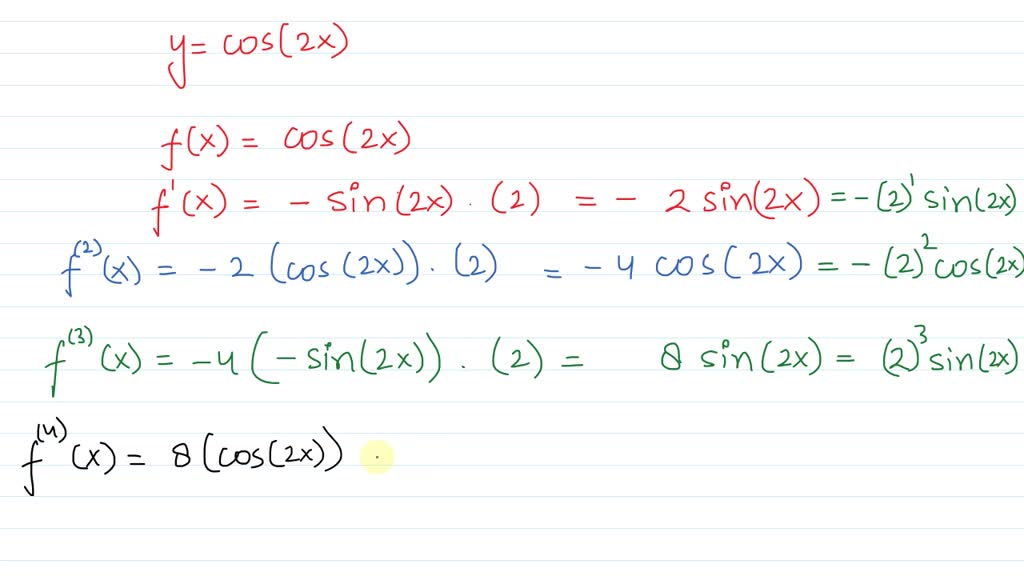 y = cos(2x)
f(x) = cos(2x)
f'(x) = - sin(2x) . (2) = - 2 sin(2x) = - (2)¹ sin(2x)
f⁽²⁾(x) = -2 (cos(2x)) . (2) = - 4 cos(2x) = - (2)² cos(2x)
f⁽³⁾(x) = -4 (- sin(2x)) . (2) = 8 sin(2x) = (2)³ sin(2x)
f⁽⁴⁾(x) = 8 (cos(2x)) .